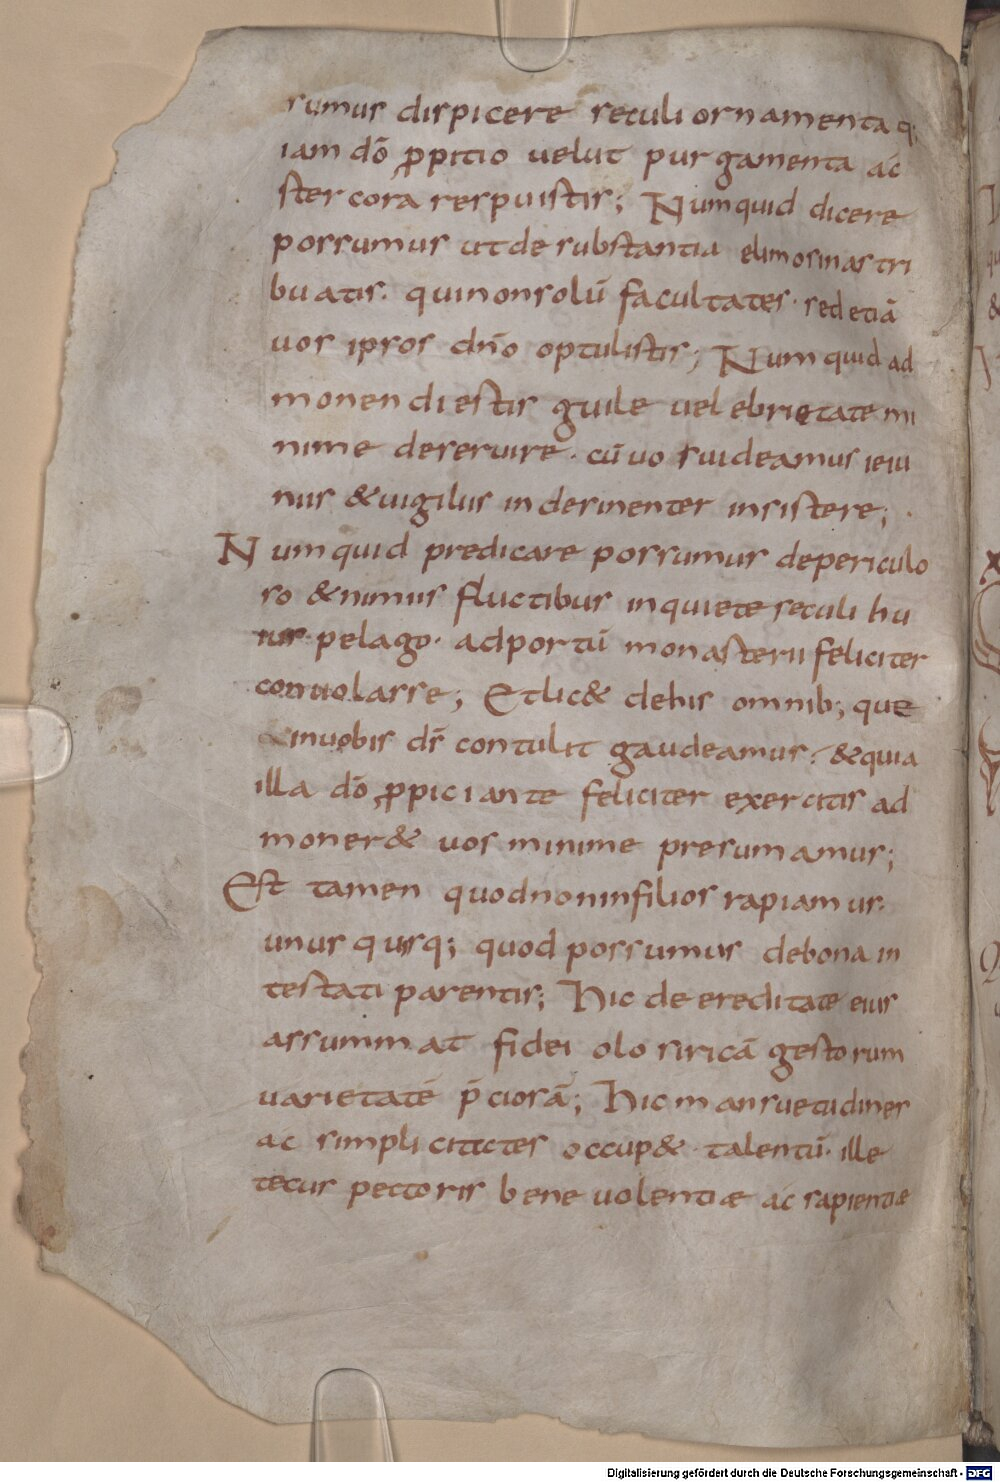 sumus dispicere seculi ornamenta q;
iam dō ꝓpitio velut purgamenta ac
stercora respuistis; Numquid dicere
possumus ut de substantia elimosinas tri
buatis. qui non solū facultates. sed etiā
vos ipsos dn̄o optulistis; Numquid ad
monendi estis guile vel ebrietate mi
nime deservire. cū vos videamus ieiu
niis & vigiliis indesinenter insistere;
Numquid predicare possumus de periculo
so & nimiis fluctibus inquiete seculi hu
ius pelago. ad portū monasterii feliciter
convolasse; Et lic& de his omnib; que
in vobis ds̄ contulit gaudeamus. & quia
illa dō ꝓpiciante feliciter exercitis ad
moner& vos minime presumamus;
Est tamen quod non in filios rapiamus.
unus quisq; quod possumus de bona in
testati parentis; Hic de ereditate eius
assummat fidei olosiricā gestorum
varietatē p̄ciosā; Hic mansuetudines
ac simplicitates occup& talentū. ille
tecus pectoris benevolentiæ ac sapientiæ
Digitalisierung gefördert durch die Deutsche Forschungsgemeinschaft - DFG